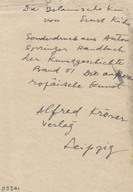 Die Islamische Kun
von Ernst Kühn
Sonderdruck aus Anton
Springer Handbuch
der Kunstgeschichte
Band VI Die außereu
ropäische Kunst
Alfred Kröner
Verlag
Leipzig